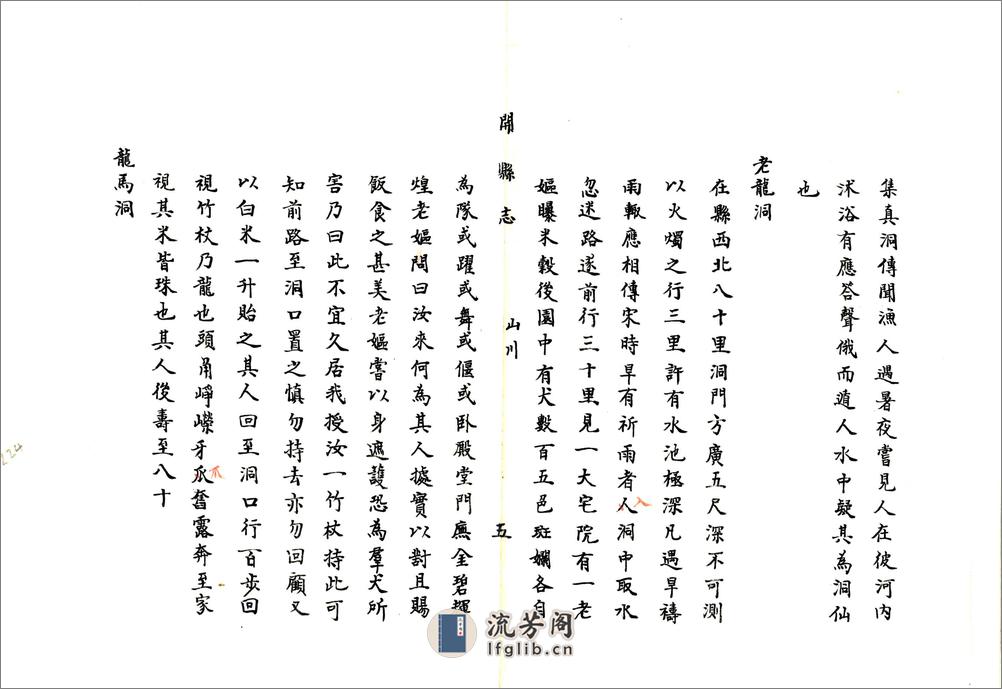 集真洞傳聞漁人遇暑夜嘗見人在彼河内
沭浴有應答聲俄而遁人水中疑其為洞仙
也
老龍洞
在縣西北八十里洞門方廣五尺深不可測
以火燭之行三里許有水池極深凡遇旱禱
雨輙應相傳宋時旱有祈雨者人洞中取水
入
忽迷路遂前行三十里見一大宅院有一老
嫗曝米穀後園中有犬數百五色斑斕各自
開縣志
山川
五
為隊或躍或舞或偃或卧殿堂門廡金碧輝
煌老嫗問曰汝來何為其人據實以對且賜
飯食之甚美老嫗嘗以身遮護恐為羣犬所
害乃曰此不宜久居我授汝一竹杖持此可
知前路至洞口置之慎勿持去亦勿回顧又
以白米一升貽之其人回至洞口行百步回
視竹杖乃龍也頭角崢嶸牙瓜奮露奔至家
爪
視其米皆珠也其人後壽至八十
龍馬洞
224
流芳阁
lfglib.cn